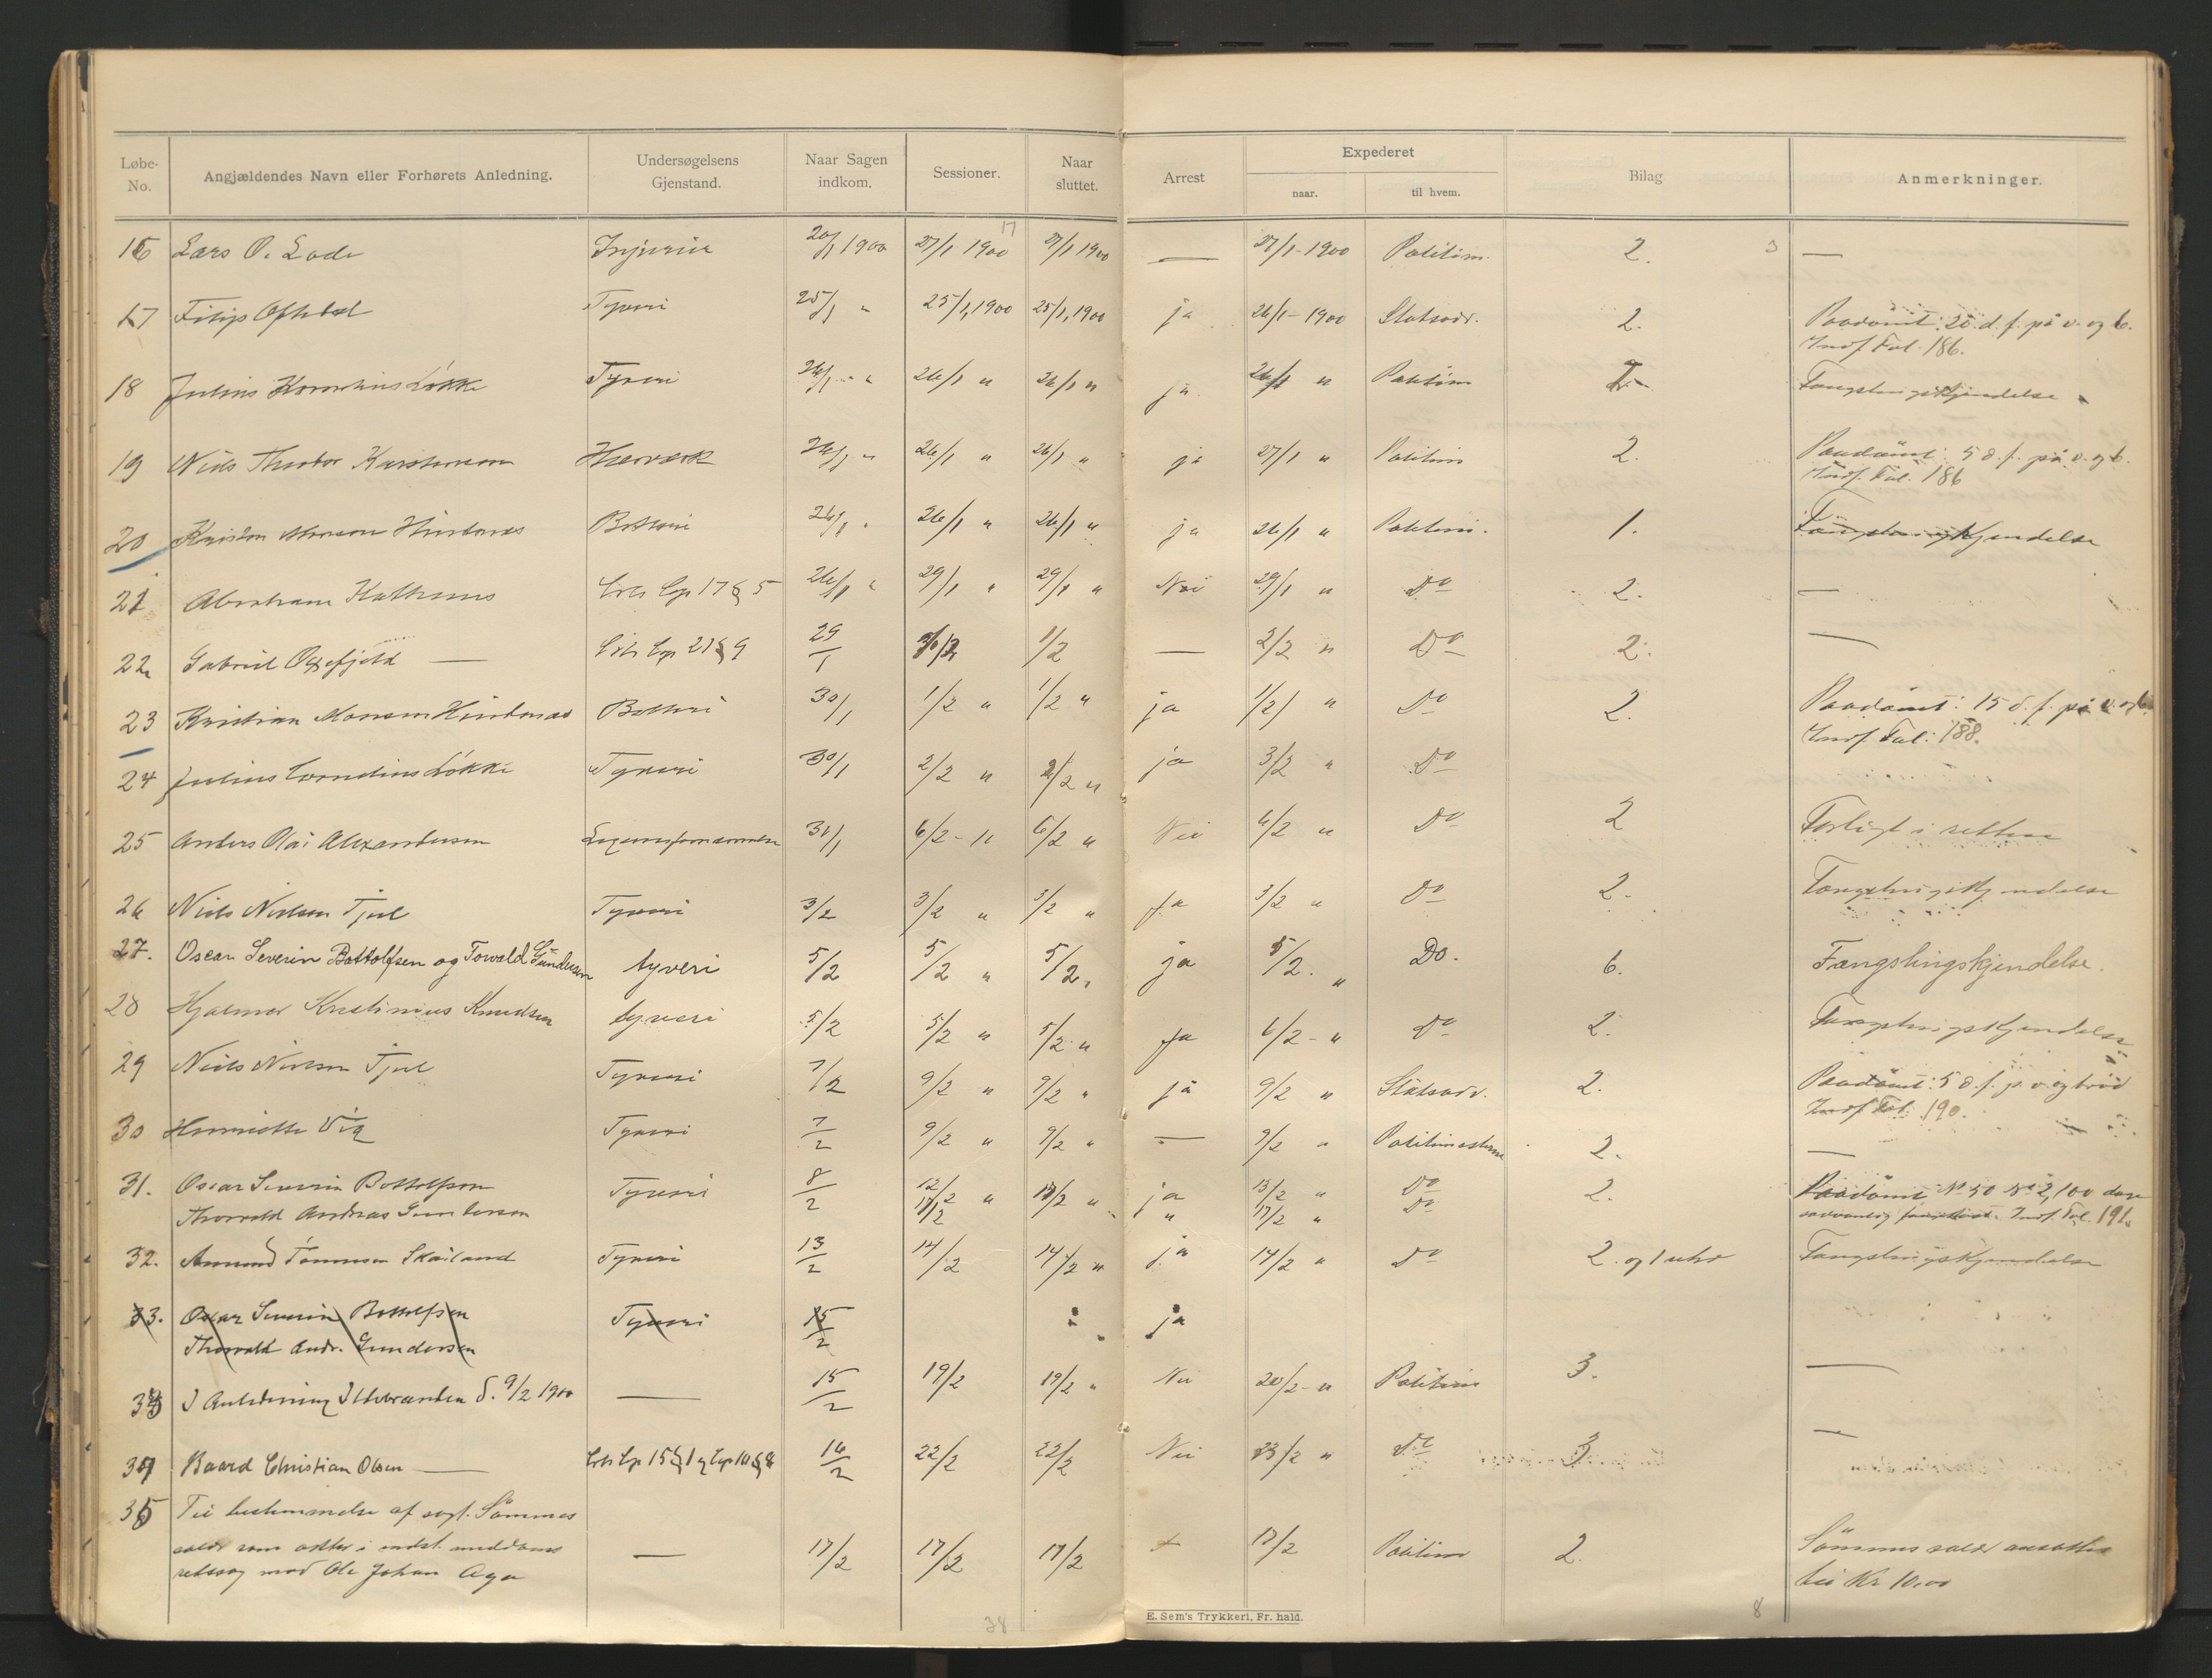 Løbe-No. Angjældendes Navn eller Forhørets Anledning. Undersøgelsens Gjenstand. Naar Sagen indkom. Sessioner. Naar sluttet. Arrest Expederet naar. til hvem. Bilag Anmerkninger.
17 3
16 Lars O. Lode Injurier 20/1 1900 27/1 1900 27/1 1900 — 27/1-1900 Politim. 2. —
17 Filip Oftedal Tyveri 25/1 " 25/1, 1900 25/1, 1900 ja 26/1-1900 Statsadv. 2. Paadömt: 20 d. f. på v. og b.
Indf. Fol. 186.
18 Julius Kornelius Løkke Tyveri 26/1 " 26/1 " 26/1 " ja 26/1 " Politim Fængslingskjendelse
19 Niels Theodor Karstensen Hærværk 26/1 " 26/1 " 26/1 " ja 27/1 " Politim 2. Paadömt: 5 d. f. på v. og b.
Indf. Fol. 186
20 Kristian Monsen Hindenæs Betleri 26/1 " 26/1 " 26/1 " ja 26/1 " Politim. 1. Fængslingskjendelse
21 Abraham 26/1 " 29/1 " 29/1 " Nei 29/1 " Do 2. —
22 Gabriel — Crls Cap 21 § 9 29/1 1/2 — 2/2 " Do 2. —
23 Kristian Monsen Hindenæs Betleri 30/1 1/2 " 1/2 " ja 1/2 " Do 2. Paadömt: 15 d. f. på v. og b.
Indf. Fol: 188.
24 Julius Cornelius Løkke Tyveri 30/1 2/2 " 2/2 " ja 3/2 " Do
25 Anders Olai Alexandersen Legemsfornærmelse 30/1 6/2 - " 6/2 " Nei 6/2 " Do 2 Forligt i retten
26 Niels Nielsen Tjul Tyveri 3/2 3/2 " 3/2 " Ja 3/2 " Do 2. Fængslingskjendelse
27. Oscar Severin Bottolfsen og Torvald Gundersen tyveri 5/2 5/2 " 5/2, ja 5/2. " Do. 6. Fængslingskjendelse.
28 Hjalmar Kristinius Knudsen tyveri 5/2 5/2 " 5/2 " Ja 6/2 - " Do 2. Fængslingskjendelse
29 Niels Nielsen Tjul Tyveri 7/2 9/2 " 9/2 " ja 9/2 " Statsadv. 2. Paadömt: 5 d. f. p. v. og bröd
Indf. Fol. 190.
30 Henriette Vig Tyveri 7/2 9/2 " 9/2 " — 9/2 " Politimesteren 2. —
31. Oscar Severin Bottolfsen Tyveri 8/2 12/2 " 17/2 " ja 13/2 " Do 2. Paadömt No 50 No 2, 100 dage
Thorvald Andreas Gundersen 17/2 " 17/2 " Do Indf. Fol. 191.
32. Amund Tönnesen Skailand Tyveri 13/2 14/2 14/2 " ja 14/2 " Do 2. og 1 uhr Fængslingskjendelse
33. Oscar Severin Bottolfsen Tyveri 15/2 ja
Thorvald Andr. Gundersen
33 I Anledning Ildebranden d. 9/2 1900 — 15/2 19/2 19/2 " Nei 20/2 - " Politim 3. —
34 Baard Christian Olsen — 16/2 22/2 22/2 Nei 23/2 " Do 3 —
35 Til bestemmelse af sagf. Sömmes
salær som aktor i meddoms
retssag mod Ole Johan Aga — 17/2 17/2 17/2 17/2 Politim 2. Sömmes salær ansattes
til Kr 10.00
E. Sem's Trykkeri, Fr. hald.
38 8